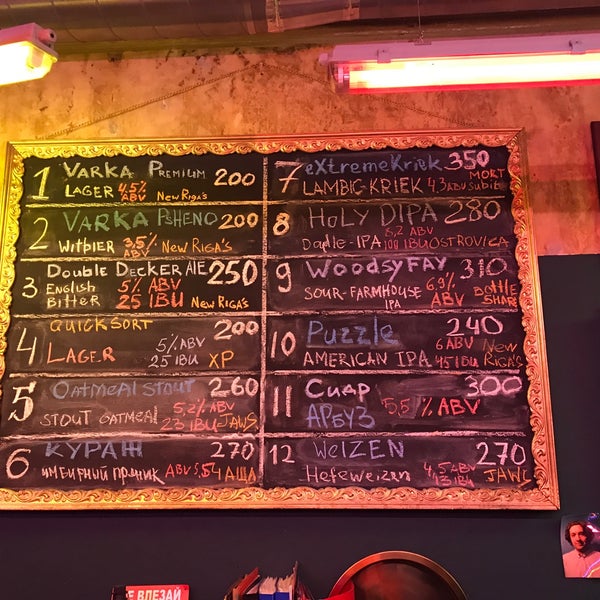 1 VARKA PREMIUM 200
LAGER 4,5% ABV NEW RIGA'S
2 VARKA PSHENO 200
WITBIER 3,5% ABV NEW RIGA'S
3 DOUBLE DECKER ALE 250
ENGLISH BITTER 5% ABV 25 IBU NEW RIGA'S
4 QUICKSORT 200
LAGER 5% ABV 25 IBU XP
5 OATMEAL STOUT 260
STOUT OATMEAL 5,2% ABV 23 IBU JAWS
6 КУРАЖ 270
ИМБИРНЫЙ ПРЯНИК ABV 5,54 АЦДА
7 eXtremeKriek 350
LAMBIC-KRIEK 4,3 ABV MORT Subite
8 HOLY DIPA 280
8,2 ABV
IPA 100 IBU OSTROVICA
9 WOODSY FAY 310
SOUR-FARMHOUSE IPA 6,9% ABV BOTTLE SHARE
10 Puzzle 240
AMERICAN IPA 6 ABV 45 IBU NEW RIGA'S
11 СИДР 300
АРБУЗ 5,5% ABV
12 WEIZEN 270
Hefeweizen 4,5 ABV 13 IBU JAWS
Е ВЛЕЗАЙ